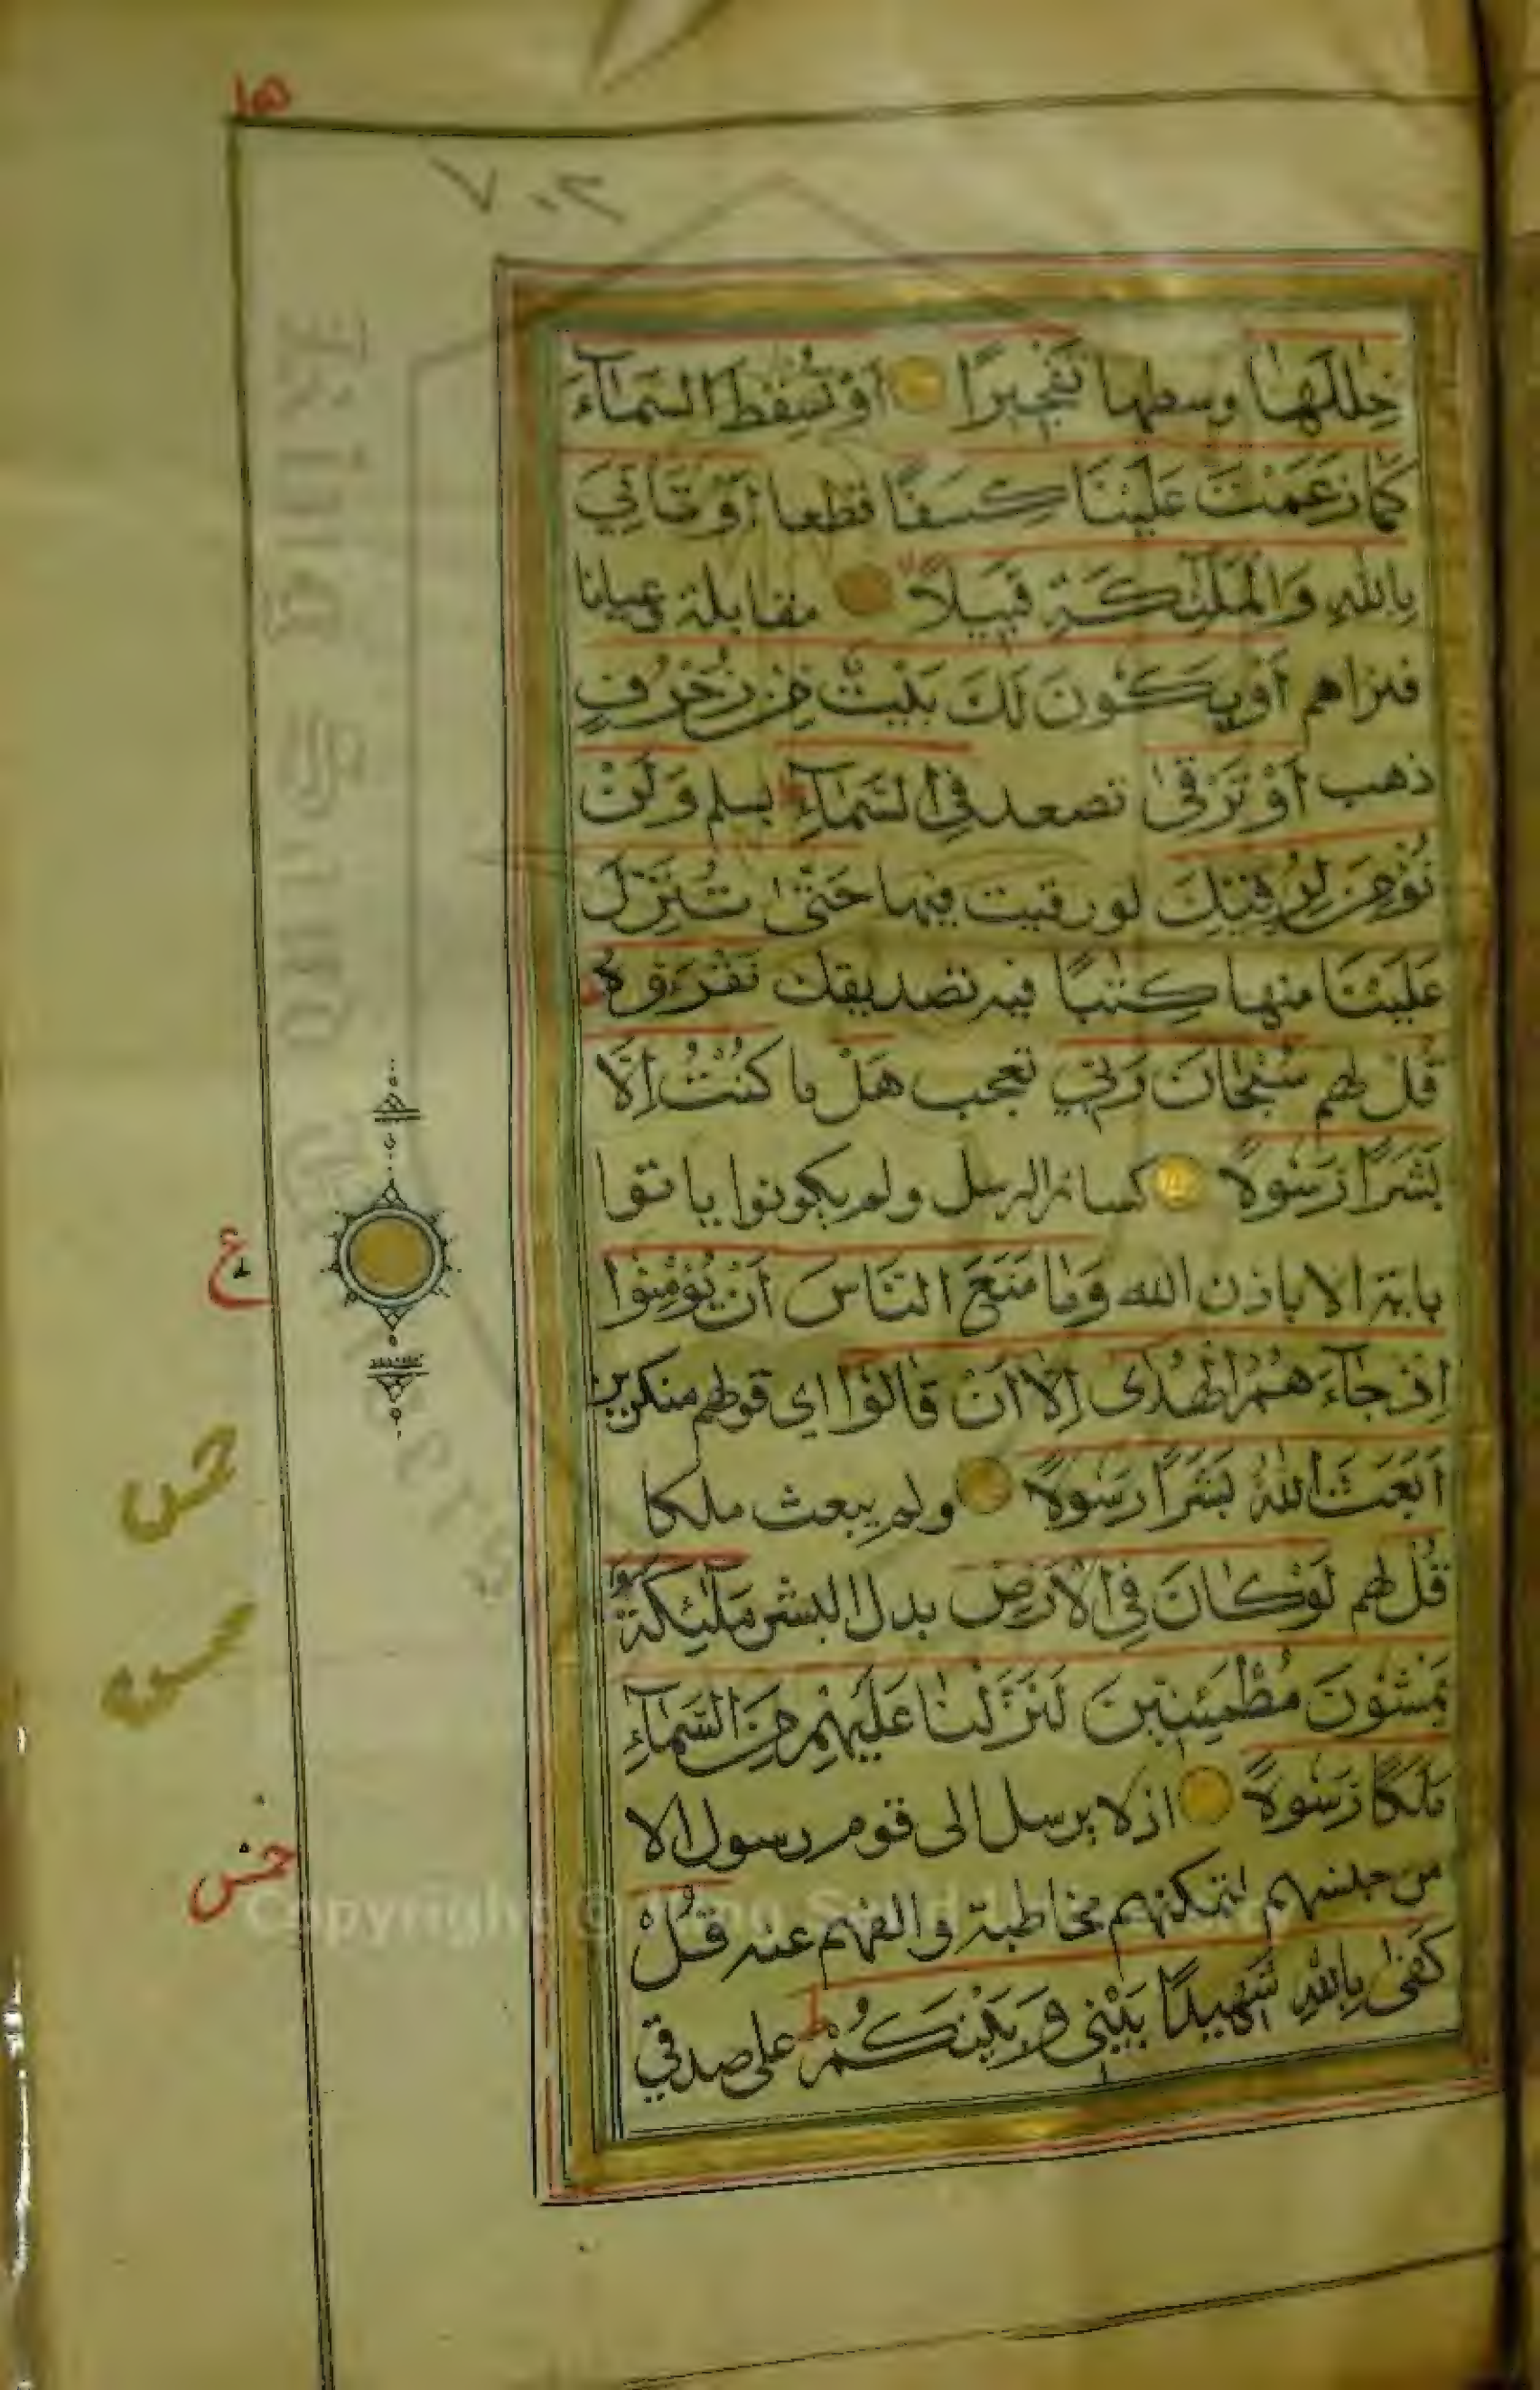 ١٥
٧٠٢
خِلٰلَهَا وسطها تَفْجِيرًا اَوْ تُسْقِطَ السَّمَآءَ
كَمَا زَعَمْتَ عَلَيْنَا كِسَفًا قطعا اَوْ تَاْتِيَ
بِاللّٰهِ وَالْمَلٰٓئِكَةِ قَبِيلًا مقابلة وعيانا
فنراهم اَوْ يَكُونَ لَكَ بَيْتٌ مِنْ زُخْرُفٍ
ذهب اَوْ تَرْقٰى تصعد فِي السَّمَآءِ بسلم وَلَنْ
نُؤْمِنَ لِرُقِيِّكَ لو رقيت فيها حَتّٰى تُنَزِّلَ
عَلَيْنَا منها كِتٰبًا فيه تصديقك نَقْرَؤُهُ
قُلْ لهم سُبْحَانَ رَبِّي تعجب هَلْ ما كُنْتُ اِلَّا
بَشَرًا رَسُولًا كسائر الرسل ولم يكونوا ياتوا
باية الا باذن الله وَمَا مَنَعَ النَّاسَ اَنْ يُؤْمِنُوا
اِذْ جَآءَهُمُ الْهُدٰى اِلَّا اَنْ قَالُوا اى قولهم منكرين
اَبَعَثَ اللّٰهُ بَشَرًا رَسُولًا ولم يبعث ملكا
قُلْ لهم لَوْ كَانَ فِي الْاَرْضِ بدل البشر مَلٰٓئِكَةٌ
يَمْشُونَ مُطْمَئِنِّينَ لَنَزَّلْنَا عَلَيْهِمْ مِنَ السَّمَآءِ
مَلَكًا رَسُولًا اذ لا يرسل الى قوم رسول الا
من جنسهم لتمكنهم مخاطبة والفهم عنه قُلْ
كَفٰى بِاللّٰهِ شَهِيدًا بَيْنِي وَبَيْنَكُمْ على صدقي
ع
Copyright ©